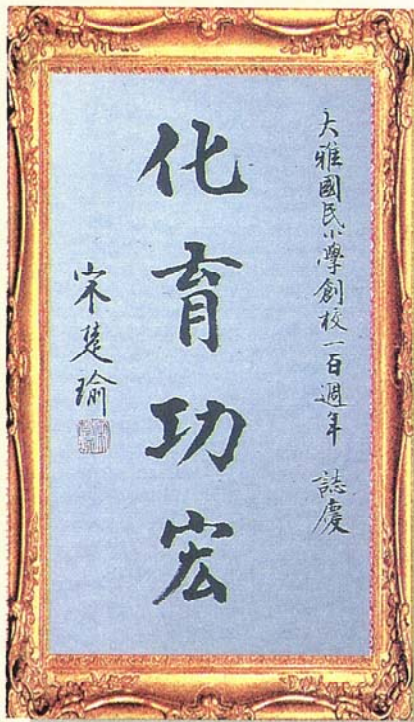 大雅國民小學創校一百週年 誌慶
化育功宏
宋楚瑜